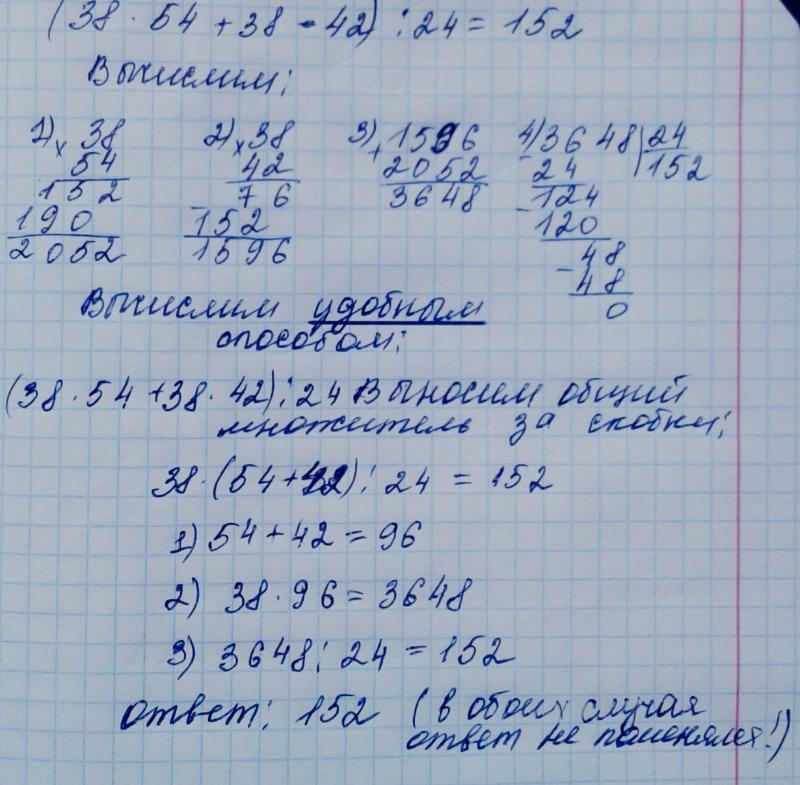 (38 · 54 + 38 · 42) : 24 = 152
Вычислим:
1) × 38
54
152
190
2052
2) × 38
42
76
152
1596
3) + 1596
2052
3648
4) 3648 | 24
- 24 | 152
124
- 120
48
- 48
0
Вычислим удобным
способом:
(38 · 54 + 38 · 42) : 24 Выносим общий
множитель за скобки:
38 · (54 + 42) : 24 = 152
1) 54 + 42 = 96
2) 38 · 96 = 3648
3) 3648 : 24 = 152
ответ: 152 (в обоих случая
ответ не поменялся!)